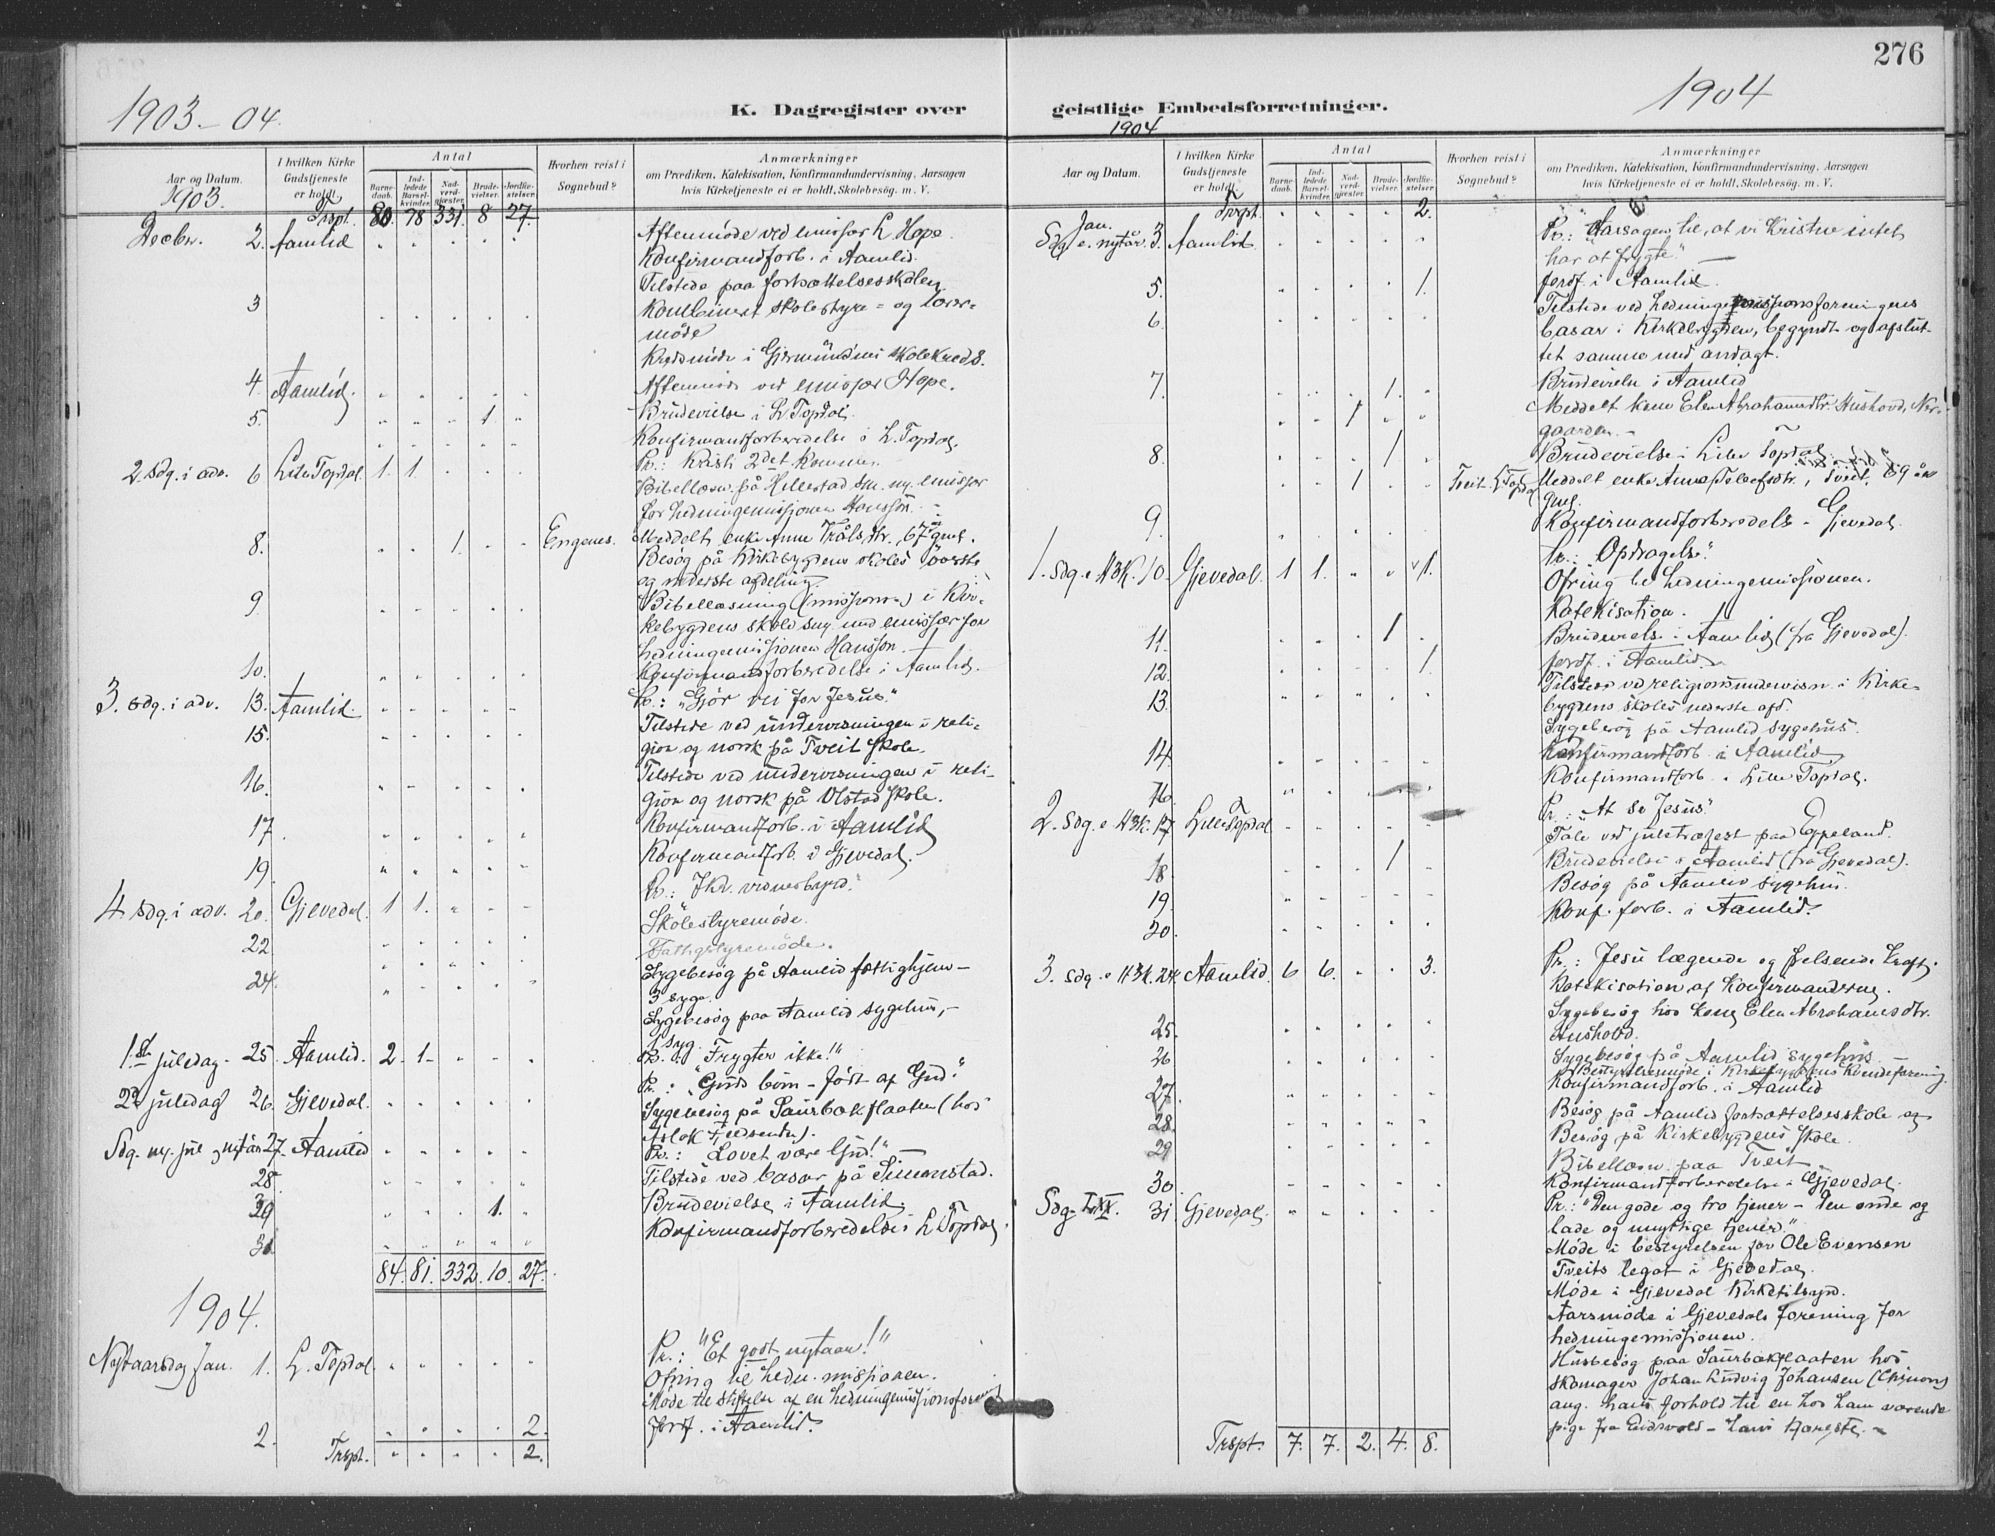 276
1903-04.
K. Dagregister over
geistlige Embedsforretninger.
1904
1904
Aar og Datum.
1903.
I hvilken Kirke Gudstjeneste er holdt.
Antal
Barnedaab.
Indledede Barselkvinder.
Nadverdgjester.
Brudevielser.
Jordfæstelser.
Hvorhen reist i Sognebud?
Anmærkninger
om Prædiken, Katekisation, Konfirmandundervisning, Aarsagen
hvis Kirketjeneste ei er holdt, Skolebesøg. m. V.
Trspt. 80. 78 331. 8 27.
Decbr. 2. Aamlid Aftenmøde ved emissær L. Hope.
Konfirmandforb. i Aamlid.
Tilstede paa fortsættelsesskolen.
3 Kombinert skolestyre- og lærer-
møde
Kredsmøde i Gjermundnes skolekreds.
4. Aamlid. Aftenmøde ved emissær Hope.
5. 1. Brudevielse i L. Topdal.
Konfirmandforberedelse i L. Topdal.
2. Sdg. i adv. 6 Lille Topdal. 1. 1. Pr.: Kristi 2det komme.
Bibellæsn. på Hillestad sm. m. emissær
for hedningemissionen Hansson.
8. 1. Engenes. Meddelt enke Anne Tråls dtr., 67 år gml.
Besøg på Kirkebygdens skoles øverste
og nederste afdeling.
9 Bibellæsning (missions-) i Kir-
kebygdens skole sm. med emissær for
hedningemissionen Hansson.
10. Konfirmandforberedelse i Aamlid.
3. sdg. i adv. 13. Aamlid. Pr.: "Gjør vei for Jesus."
15. Tilstede ved undervisningen i reli-
gion og norsk på Tveit skole.
16. Tilstede ved undervisningen i reli-
gion og norsk på Olstad skole.
17 Konfirmandforb. i Aamlid
19. Konfirmandforb. i Gjevedal.
4 sdg. i adv. 20. Gjevedal. 1 1. Pr.: "Joh. vidnesbyrd."
22 Skolestyremøde.
Fattigstyremøde.
24. Sygebesøg på Aamlid fattighjem -
3 syge.
Sygebesøg paa Aamlid sygehus, -
1 syg.
1ste juledag - 25. Aamlid. 2. 1. Pr.: "Frygter ikke!"
2d juledag 26. Gjevedal. Pr.: "Guds børn - født af Gud."
Sygebesøg på Saurbækflaaten (hos
Aslak ).
Sdg. m. jul og nytår 27. Aamlid Pr.: "Lovet være Gud!"
28. Tilstede ved basar på Simonstad.
29 1. Brudevielse i Aamlid.
30. Konfirmandforberedelse i L. Topdal.
84. 81. 332. 10. 27.
1904.
Nytaarsdag Jan. 1. L. Topdal Pr.: "Et godt nytaar!"
Ofring til hedn. missionen.
Møde til stiftelse af en hedningemissionsforening
2. 2. Jordf. i Aamlid.
Trspt. 2.
Aar og Datum.
I hvilken Kirke Gudstjeneste er holdt.
Antal
Barnedaab.
Indledede Barselkvinder.
Nadverdgjester.
Brudevielser.
Jordfæstelser.
Hvorhen reist i Sognebud?
Anmærkninger
om Prædiken, Katekisation, Konfirmandundervisning, Aarsagen
hvis Kirketjeneste ei er holdt, Skolebesøg. m. V.
Trspt. 2.
Jan.
Sdg. e. nytår. 3. Aamlid. Pr.: "Aarsagen til, at vi kristne intet
har at frygte."
5. 1. Jordf. i Aamlid.
6. Tilstede ved hedningemissionsforeningens
basar i Kirkebygden, begyndt og afslut-
tet samme med andagt.
7. 1. Brudevielse i Aamlid
1 Meddelt kone Elen Abrahamsdtr. Hushovd, Ner-
gaarden.
8. 1 Brudevielse i Lille Topdal.
1 Tveit L. Topdal Meddelt enke Anne Tellefsdtr., Tveit, 89 år
gml.
9. Konfirmandforberedelse - Gjevedal.
1. Sdg. e. H3K. 10. Gjevedal. 1 1. 1. Pr.: "Opdragelse."
Ofring til hedningemissionen.
Katekisation.
11. 1 Brudevielse i Aamlid (fra Gjevedal).
12. 1. Jordf. i Aamlid.
13. Tilstede ved religionsundervisn. i Kirke-
bygdens skoles nederste afd.
Sygebesøg på Aamlid sygehus.
14 Konfirmandforb. i Aamlid
16. Konfirmantforb. i Lille Topdal.
2. Sdg. e. H3K. 17 Lille Topdal Pr.: "At se Jesus."
Tale ved juletræfest paa Eppeland.
18. 1 Brudevielse i Aamlid (fra Gjevedal).
19. Besøg på Aamlid sygehus.
20. Konf. forb. i Aamlid.
3. sdg. e. H3K. 24. Aamlid. 6 6. 3. Pr.: Jesu lægende og frelsende kraft.
Katekisation af konfirmanderne.
25. Sygebesøg hos kone Elen Abrahamsdtr.
Hushovd.
26 Sygebesøg på Aamlid sygehus. -
Bestyrelsesmøde i Kirkebygdens kvindeforening.
27. Konfirmandforb. i Aamlid
28. Besøg på Aamlid fortsættelsesskole og
Besøg på Kirkebygdens skole.
29 Bibellæsn. paa Tveit.
30. Konfirmandforberedelse i Gjevedal.
Sdg. LXX. 31 Gjevedal. Pr.: "Den gode og tro tjener - den onde og
lade og unyttige tjener."
Møde i bestyrelsen for Ole Evensen
Tveits legat i Gjevedal.
Møde i Gjevedal kirketilsyn.
Aarsmøde i Gjevedals forening for
hedningemissionen.
Husbesøg paa Saurbækflaaten hos
skomager Johan Ludvig Johansen
ang. hans forhold til en hos ham værende
pige fra Eidsvold -
Trspt. 7. 7. 2. 4. 8.